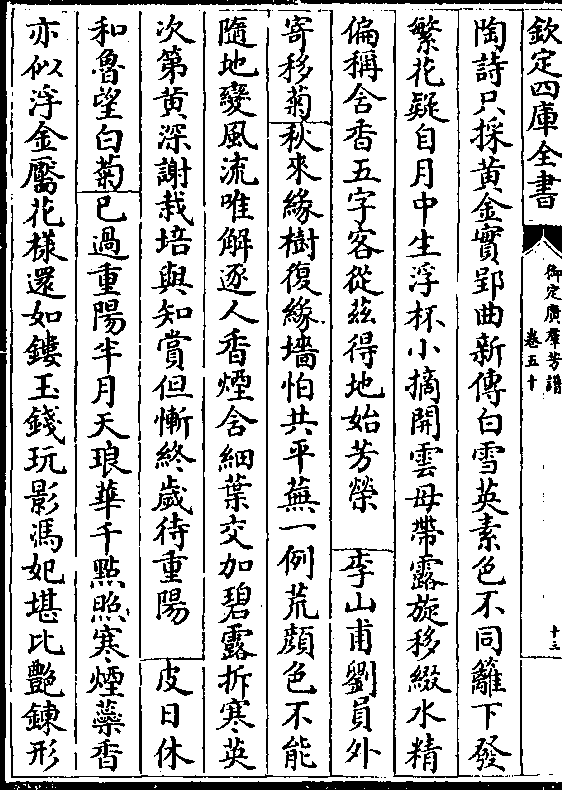 欽定四庫全書
御定廣羣芳譜
卷五十
十三
陶詩只採黃金實郢曲新傳白雪英素色不同籬下發
繁花疑自月中生浮杯小摘開雲母帶露旋移綴水精
偏稱含香五字客從茲得地始芳榮　李山甫劉員外
寄移菊秋來緣樹復緣墻怕共平蕪一例荒顔色不能
隨地變風流唯解逐人香煙含細葉交加碧露拆寒英
次第黃深謝栽培與知賞但慚終歲待重陽　皮日休
和魯望白菊已過重陽半月天琅華千點照寒煙蘂香
亦似浮金靨花樣還如鏤玉錢玩影馮妃堪比艷鍊形